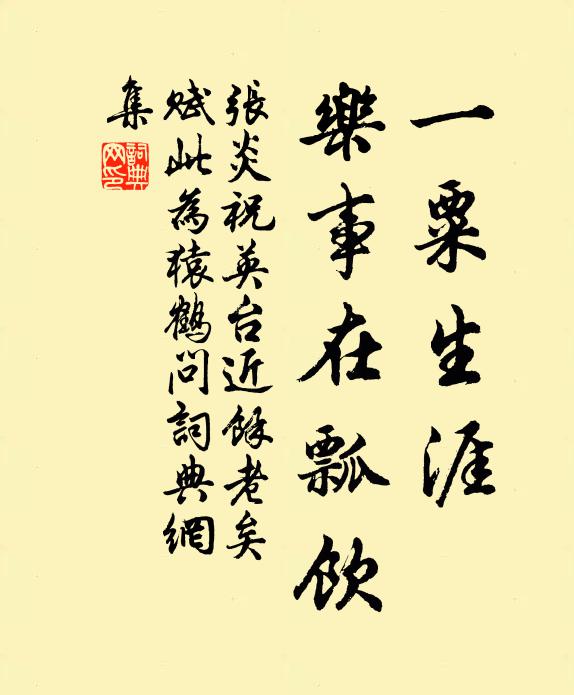 一粟生涯
樂事在瓢飲
張炎祝英台近餘老矣
賦此為猿鶴問詞典網
集
詞典
網印